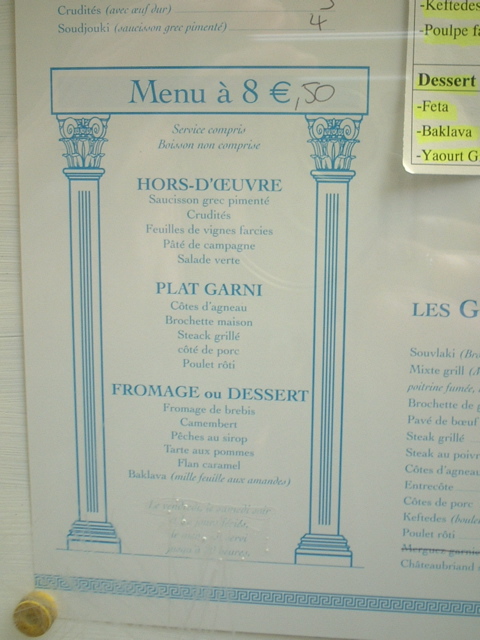 Crudités (avec œuf dur)
Soudjouki (saucisson grec pimenté) 4
-Keftedes
-Poulpe
Dessert
-Feta
-Baklava
-Yaourt G
Menu à 8 €,50
Service compris
Boisson non comprise
HORS-D'ŒUVRE
Saucisson grec pimenté
Crudités
Feuilles de vignes farcies
Pâté de campagne
Salade verte
PLAT GARNI
Côtes d'agneau
Brochette maison
Steack grillé
côté de porc
Poulet rôti
FROMAGE ou DESSERT
Fromage de brebis
Camembert
Pêches au sirop
Tarte aux pommes
Flan caramel
Baklava (mille feuille aux amandes)
LES G
Souvlaki
Mixte grill
poitrine fumée,
Brochette de
Pavé de bœuf
Steak grillé
Steak au poivr
Côtes d'agneau
Entrecôte
Côtes de porc
Keftedes
Poulet rôti
Merguez garnie
Châteaubriand